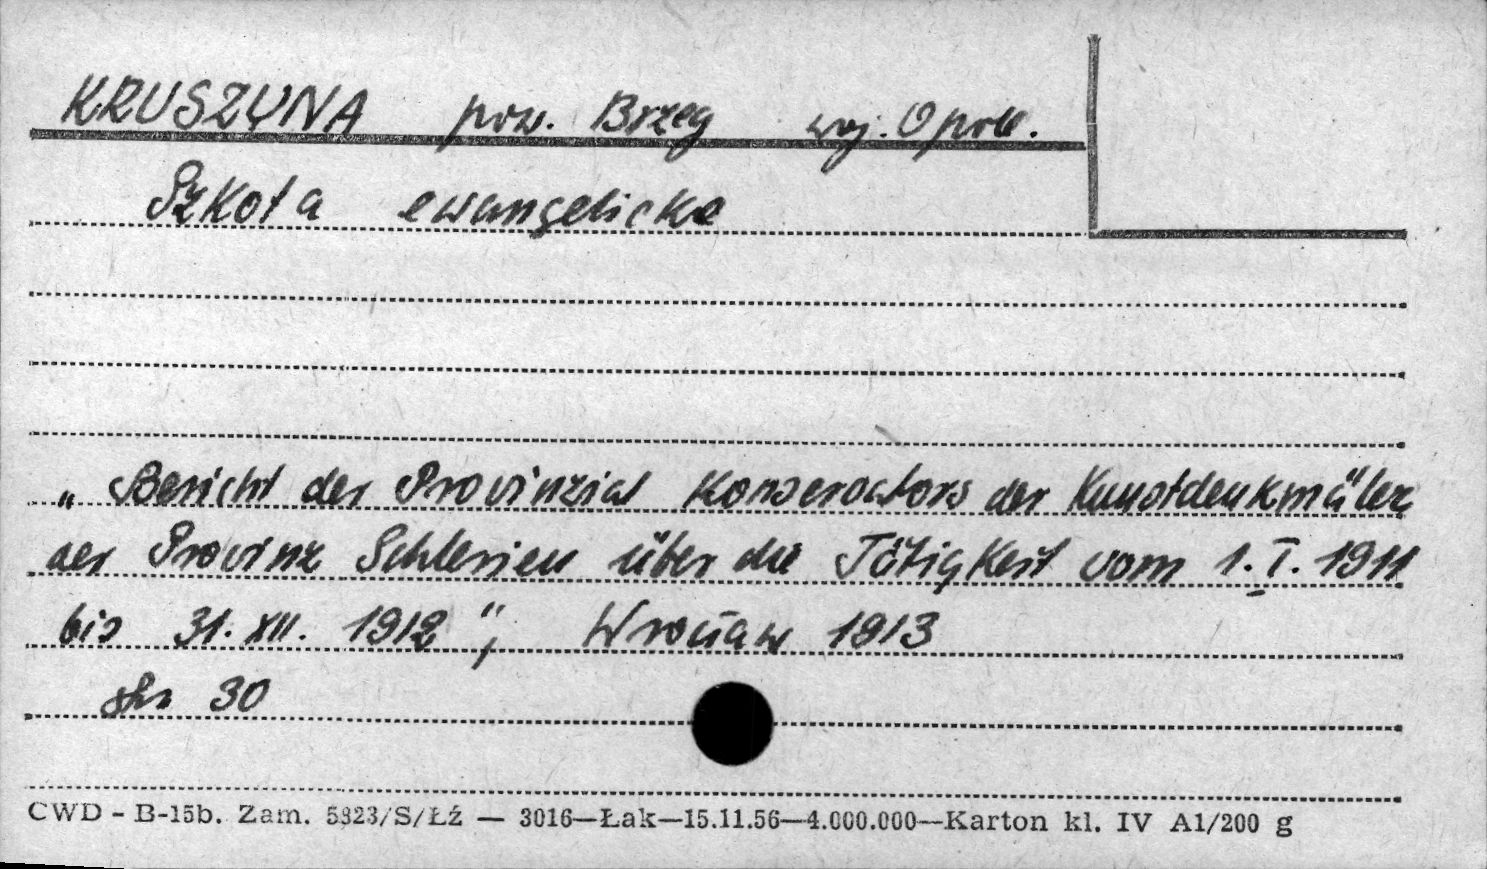 KRUSZYNA pow. Brzeg woj. Opole.
Szkoła ewangelicka
„Bericht der Provinzial Konservators der Kunstdenkmäler
der Provinz Schlesien über die Tätigkeit vom 1.I.1911
bis 31.XII.1912", Wrocław 1913
str 30
CWD - B-15b. Zam. 5823/S/Łź — 3016—Łak—15.11.56—4.000.000—Karton kl. IV A1/200 g